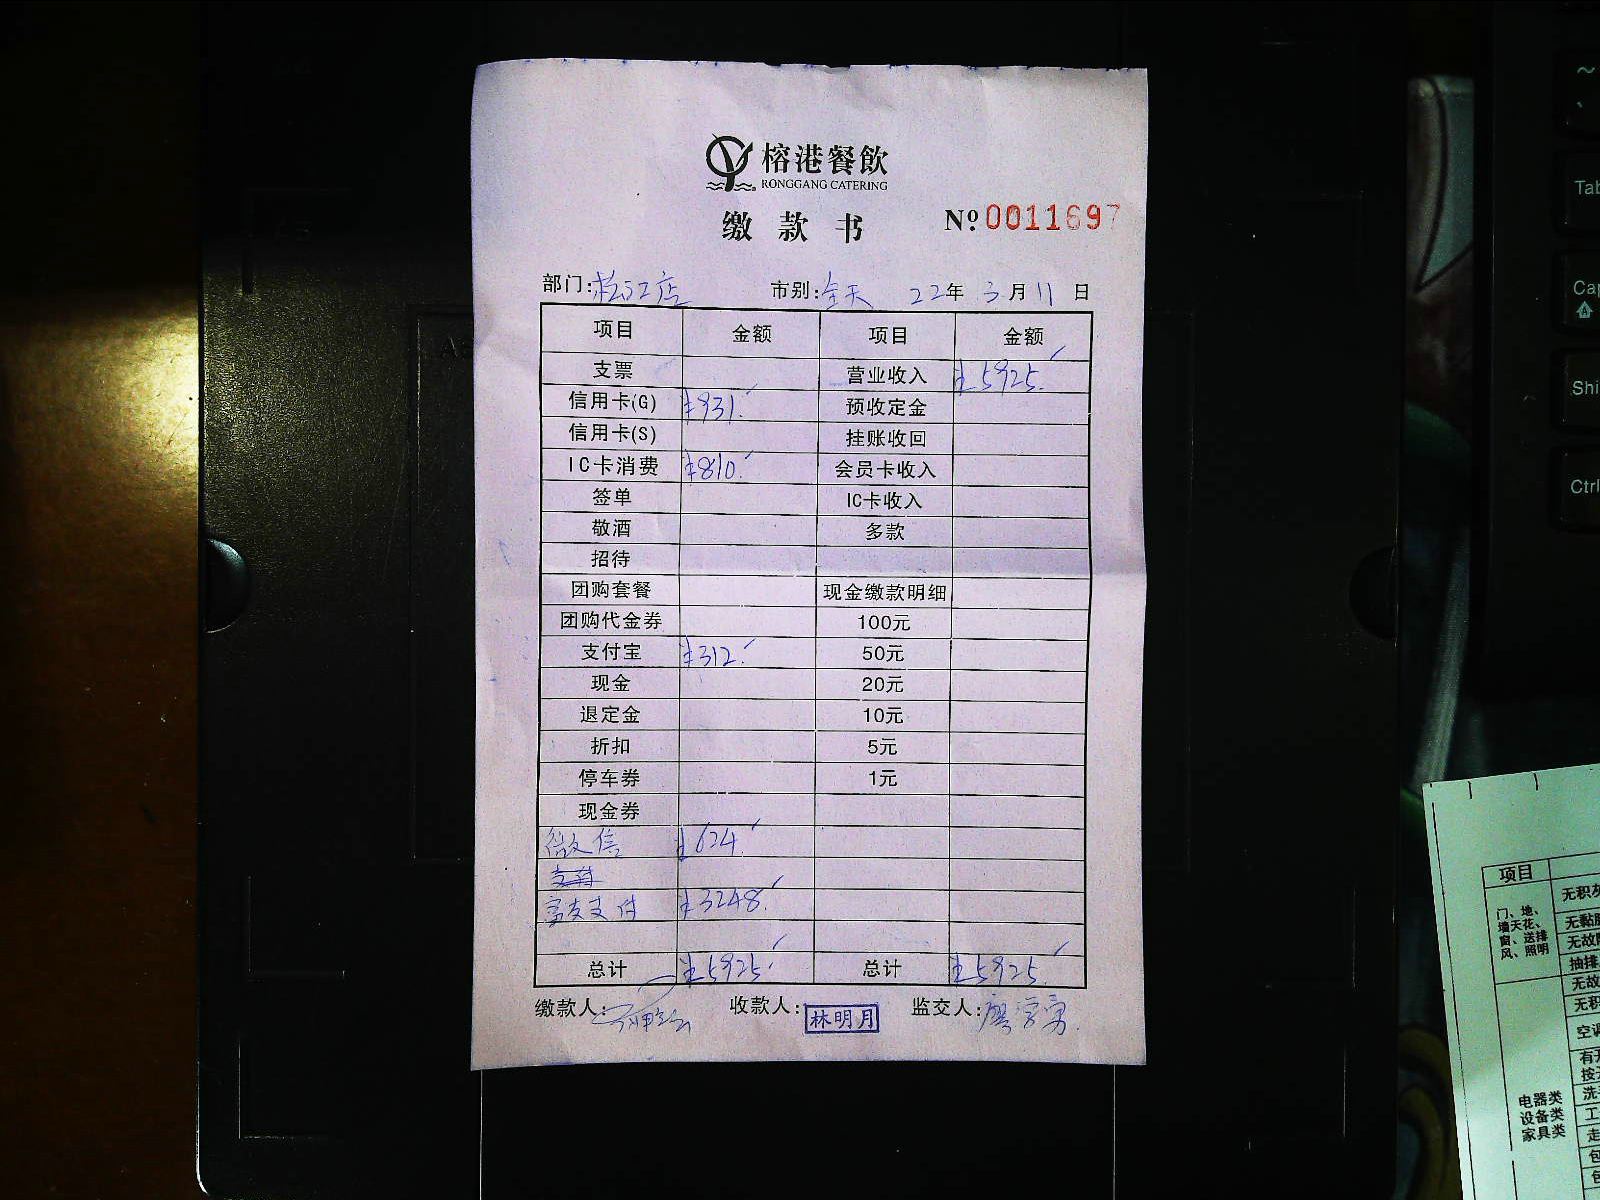 榕港餐飲
RONGGANG CATERING
缴款书 №0011697
部门:松江店 市别:全天 22年3月11日
项目 金额 项目 金额
支票 营业收入 ¥5925.
信用卡(G) ¥931. 预收定金
信用卡(S) 挂账收回
IC卡消费 ¥810. 会员卡收入
签单 IC卡收入
敬酒 多款
招待
团购套餐 现金缴款明细
团购代金券 100元
支付宝 ¥312. 50元
现金 20元
退定金 10元
折扣 5元
停车券 1元
现金券
微信 ¥624.
支付
富友支付 ¥3248.
总计 ¥5925. 总计 ¥5925.
缴款人: 收款人:林明月 监交人:
~
、
Tab
Cap
Shi
Ctrl
项目
门、地、
墙天花、
窗、送排
风、照明
无积灰
无故
抽排
无故
无积
空调
电器类
设备类
家具类